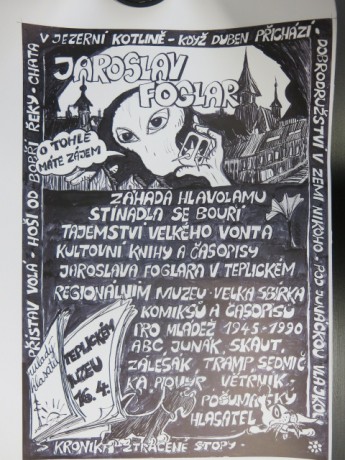 V JEZERNÍ KOTLINĚ - KDYŽ DUBEN PŘICHÁZÍ -
DOBRODRUŽSTVÍ V ZEMI NIKOHO - POD JUNÁCKOU VLAJKOU
PŘÍSTAV VOLÁ - HOŠI OD BOBŘÍ ŘEKY - CHATA
JAROSLAV
FOGLAR
O TOHLE
MÁTE ZÁJEM
ZÁHADA HLAVOLAMU
STÍNADLA SE BOUŘÍ
TAJEMSTVÍ VELKÉHO VONTA
KULTOVNÍ KNIHY A ČASOPISY
JAROSLAVA FOGLARA V TEPLICKÉM
REGIONÁLNÍM MUZEU - VELKÁ SBÍRKA
KOMIKSŮ A ČASOPISŮ
PRO MLÁDEŽ 1945-1990
ABC, JUNÁK, SKAUT,
ZÁLESÁK, TRAMP, SEDMIČ
KA PIONÝR, VĚTRNÍK,
POŠUMAVSKÝ
HLASATEL
TEPLICKÉM
16.4.
- KRONIKA ZTRACENÉ STOPY -